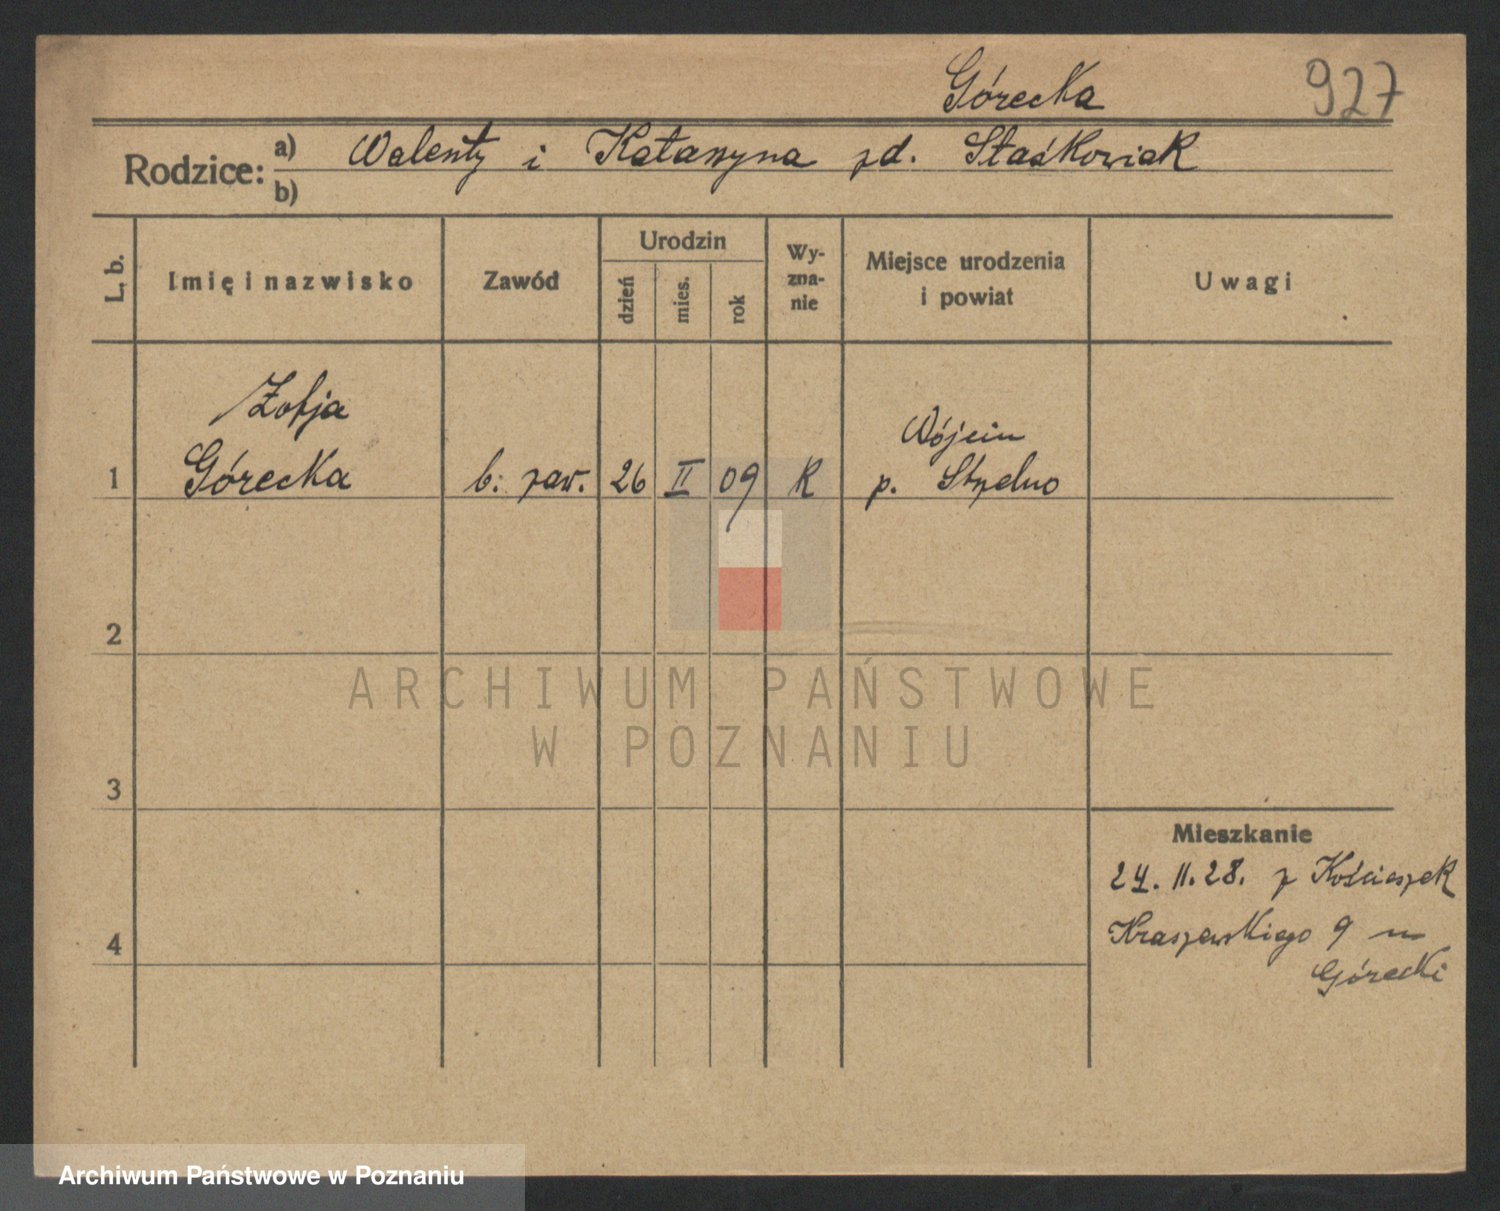 Górecka 927
Rodzice: a) Walenty i Katarzyna zd. Staśkowiak
b)
L. b.
Imię i nazwisko
Zawód
Urodzin
dzień
mies.
rok
Wy-
zna-
nie
Miejsce urodzenia
i powiat
Uwagi
Zofja
Górecka
1
b. zaw.
26 II 09
R
Wójcin
p. Strzelno
2
3
4
Mieszkanie
24. 11. 28. z Kościeszek
Kraszewskiego 9 u
Górecki
ARCHIWUM PAŃSTWOWE
W POZNANIU
Archiwum Państwowe w Poznaniu